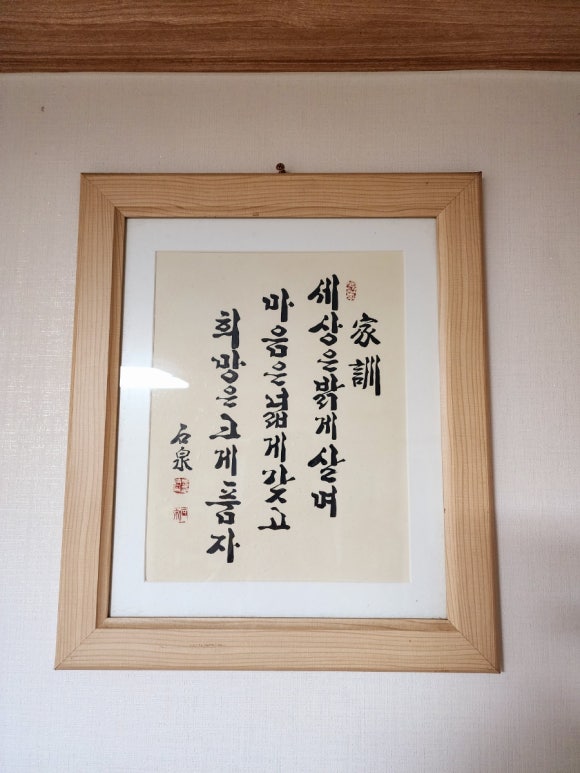 家訓
세상은 밝게 살며
마음은 넓게 갖고
희망은 크게 품자
石泉